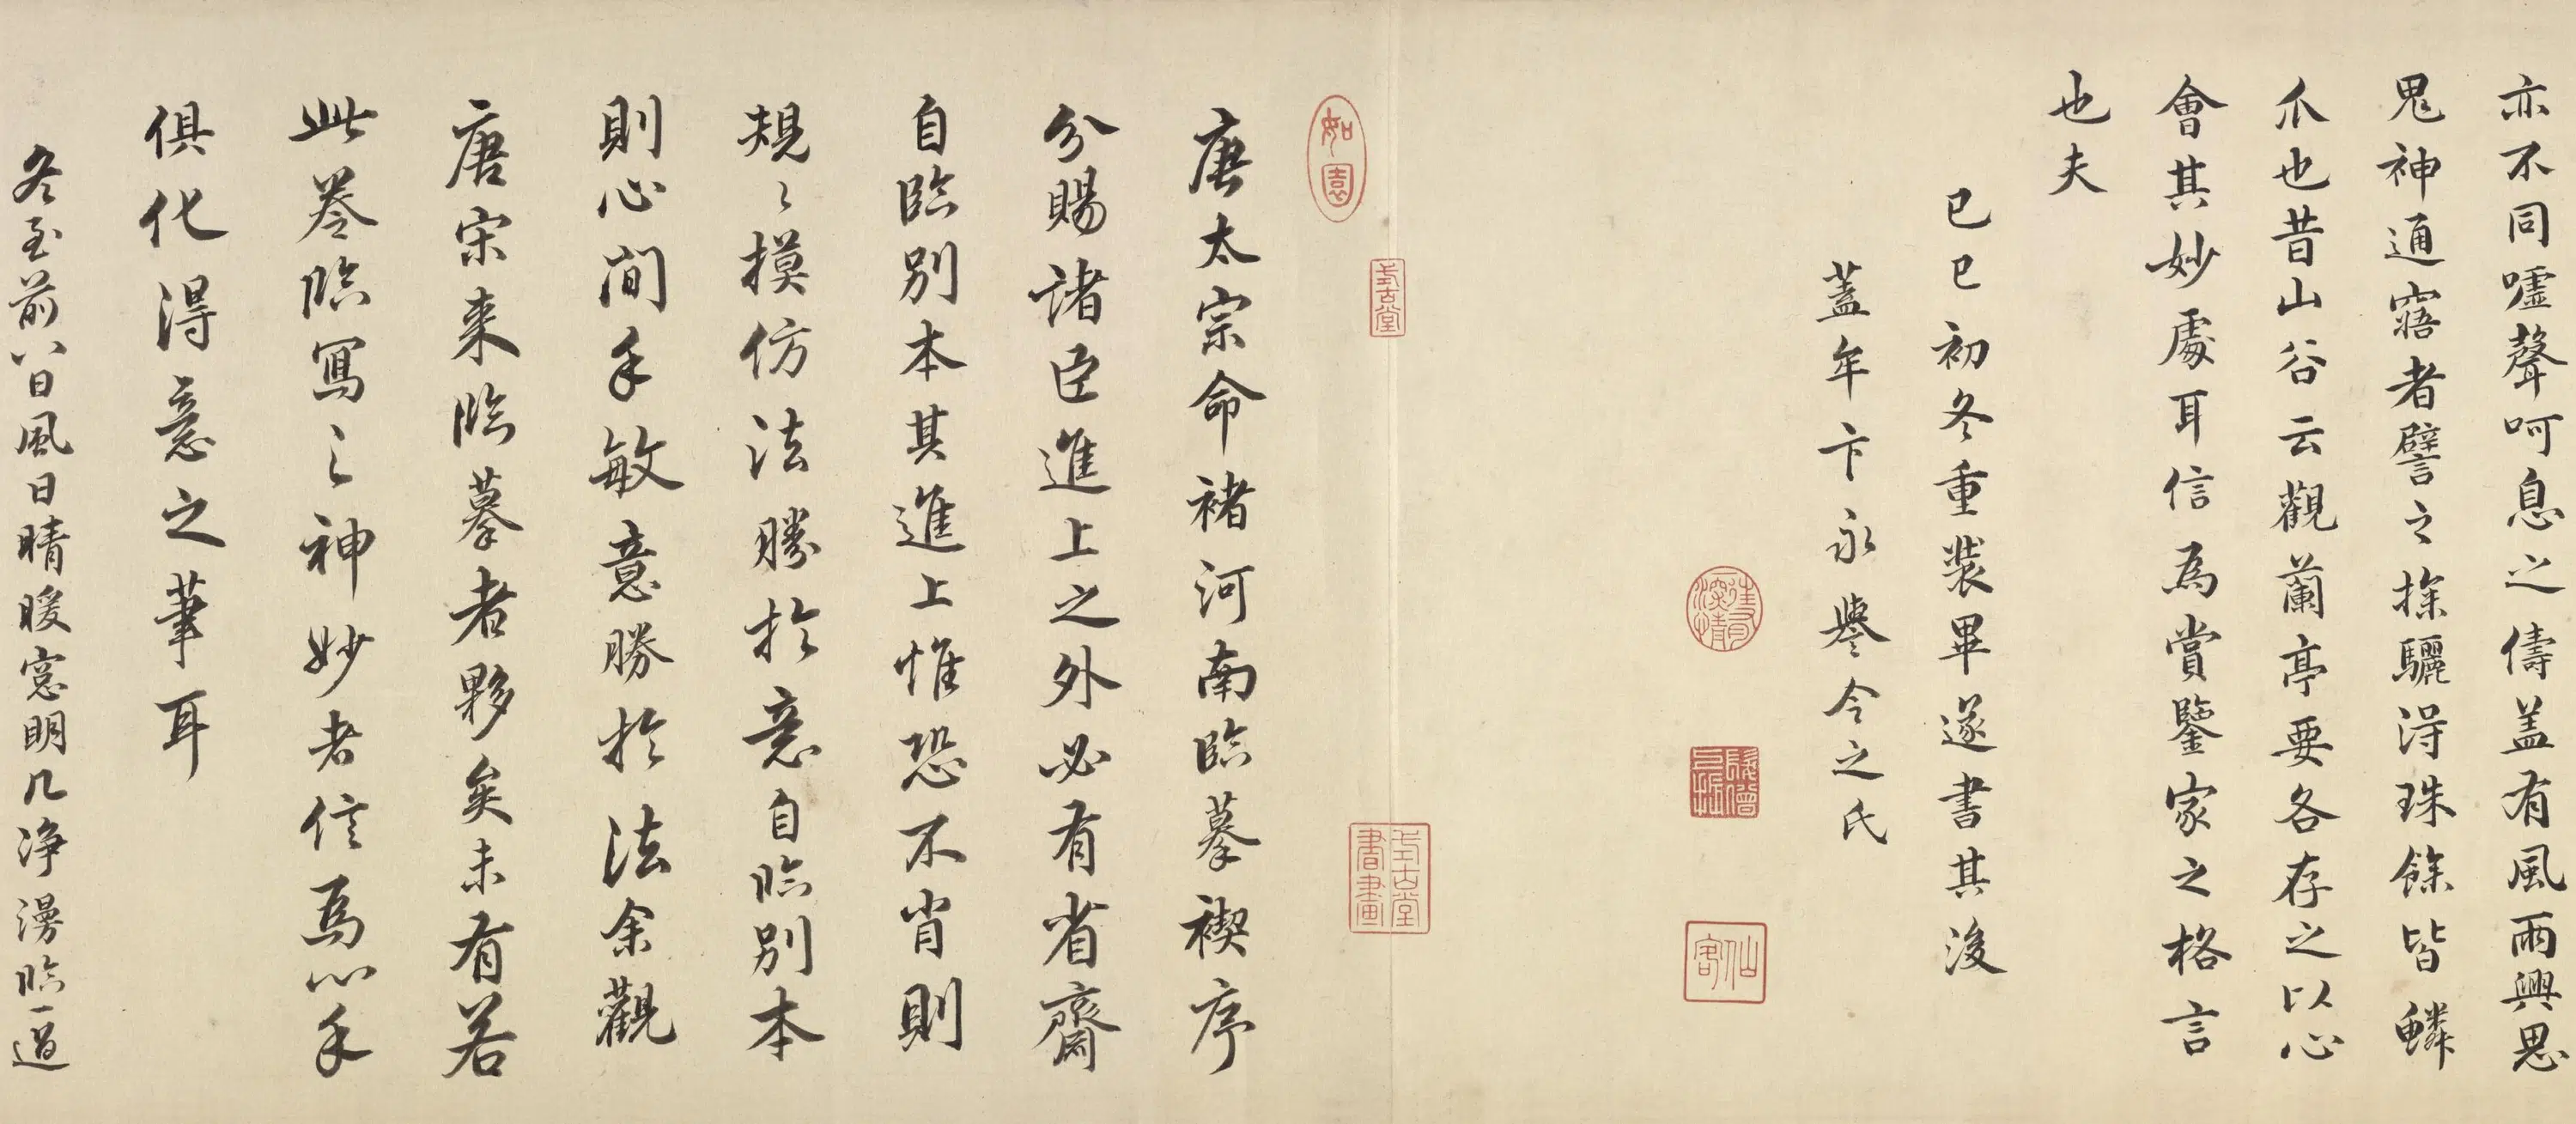 亦不同嘘聲呵息之儔盖有風雨興思
鬼神通寤者譬之探驪得珠餘皆鱗
爪也昔山谷云觀蘭亭要各存之以心
會其妙處耳信為賞鑒家之格言
也夫
已巳初冬重裝畢遂書其後
蓋牟卞永譽令之氏
仙客
如園
式古堂
式古堂書畫
唐太宗命褚河南臨摹禊序
分賜諸臣進上之外必有省齋
自臨別本其進上惟恐不肖則
規〻摸仿法勝於意自臨別本
則心閒手敏意勝於法余觀
唐宋来臨摹者夥矣未有若
此卷臨寫之神妙者信為心手
俱化得意之筆耳
冬至前八日風日晴暖窓明几净漫臨一過